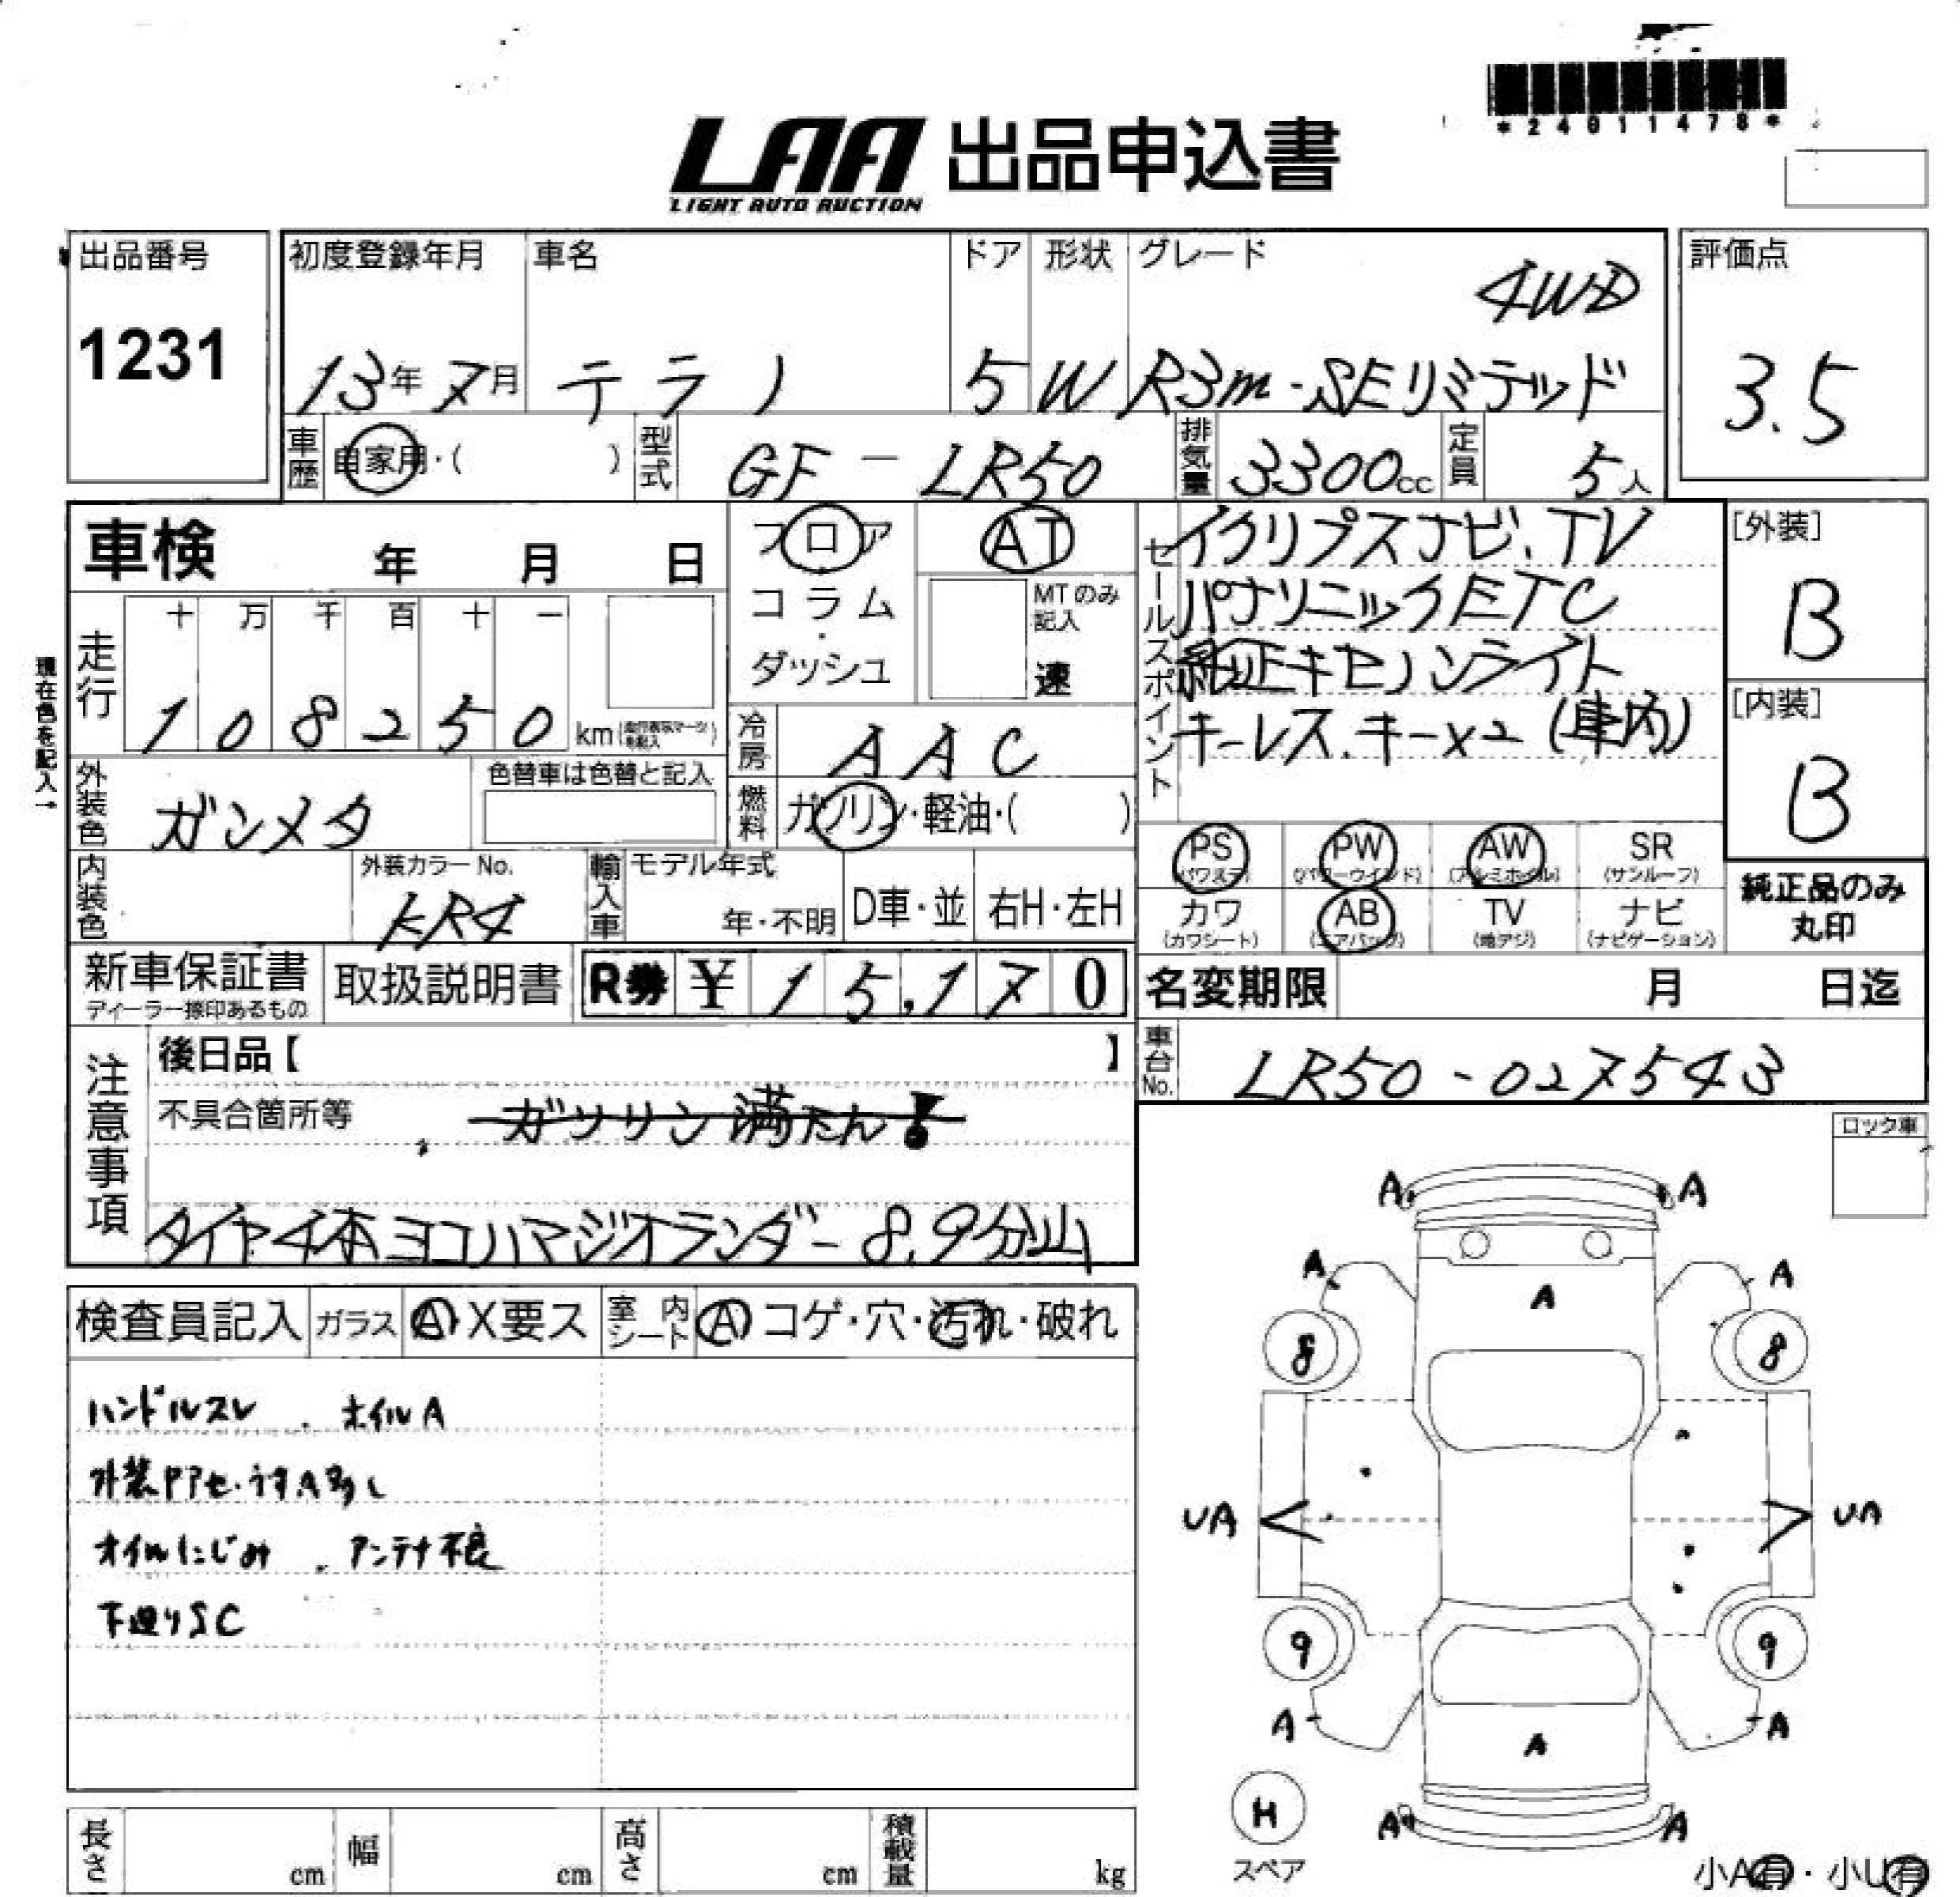 *24011478*
LAA 出品申込書
LIGHT AUTO AUCTION
出品番号
1231
初度登録年月
13年7月
車名
テラノ
ドア
5
形状
W
グレード
4WD
R3m-SEリミテッド
評価点
3.5
車歴
自家用・( )
型式
GF-LR50
排気量
3300cc
定員
5人
車検 年 月 日
フロア
・
コラム
・
ダッシュ
AT
MTのみ
記入
速
セールスポイント
イクリプスナビ、TV
パナソニックETC
純正キセノンライト
キーレス、キーx2 (車内)
[外装]
B
[内装]
B
現在色を記入→
走行
十 万 千 百 十 一
1 0 8 2 5 0 km
冷房
AAC
外装色
ガンメタ
色替車は色替と記入
燃料
ガソリン・軽油・( )
内装色
外装カラーNo.
KR4
輸入車
モデル年式
年・不明
D車・並
右H・左H
PS
(パワステ)
PW
(パワーウインド)
AW
(アルミホイル)
SR
(サンルーフ)
カワ
(カワシート)
AB
(エアバック)
TV
(地デジ)
ナビ
(ナビゲーション)
純正品のみ
丸印
新車保証書
ディーラー捺印あるもの
取扱説明書
R券 ¥ 15,170
名変期限 月 日迄
車台No.
LR50-027543
注意事項
後日品【 】
不具合箇所等
ガソリン満たん!
タイヤ4本ヨコハマジオランダー 8.9分山
ロック車
検査員記入
ガラス
A X要ス
室内シート
A コゲ・穴・汚れ・破れ
ハンドルスレ、オイルA
外装ヤアセ・うすA多し
オイルにじみ、アンテナ不良
下廻りSC
A A
A A
A
8 8
UA UA
9 9
A A
A
H
スペア
A A
小A有・小U有
長さ cm
幅 cm
高さ cm
積載量 kg